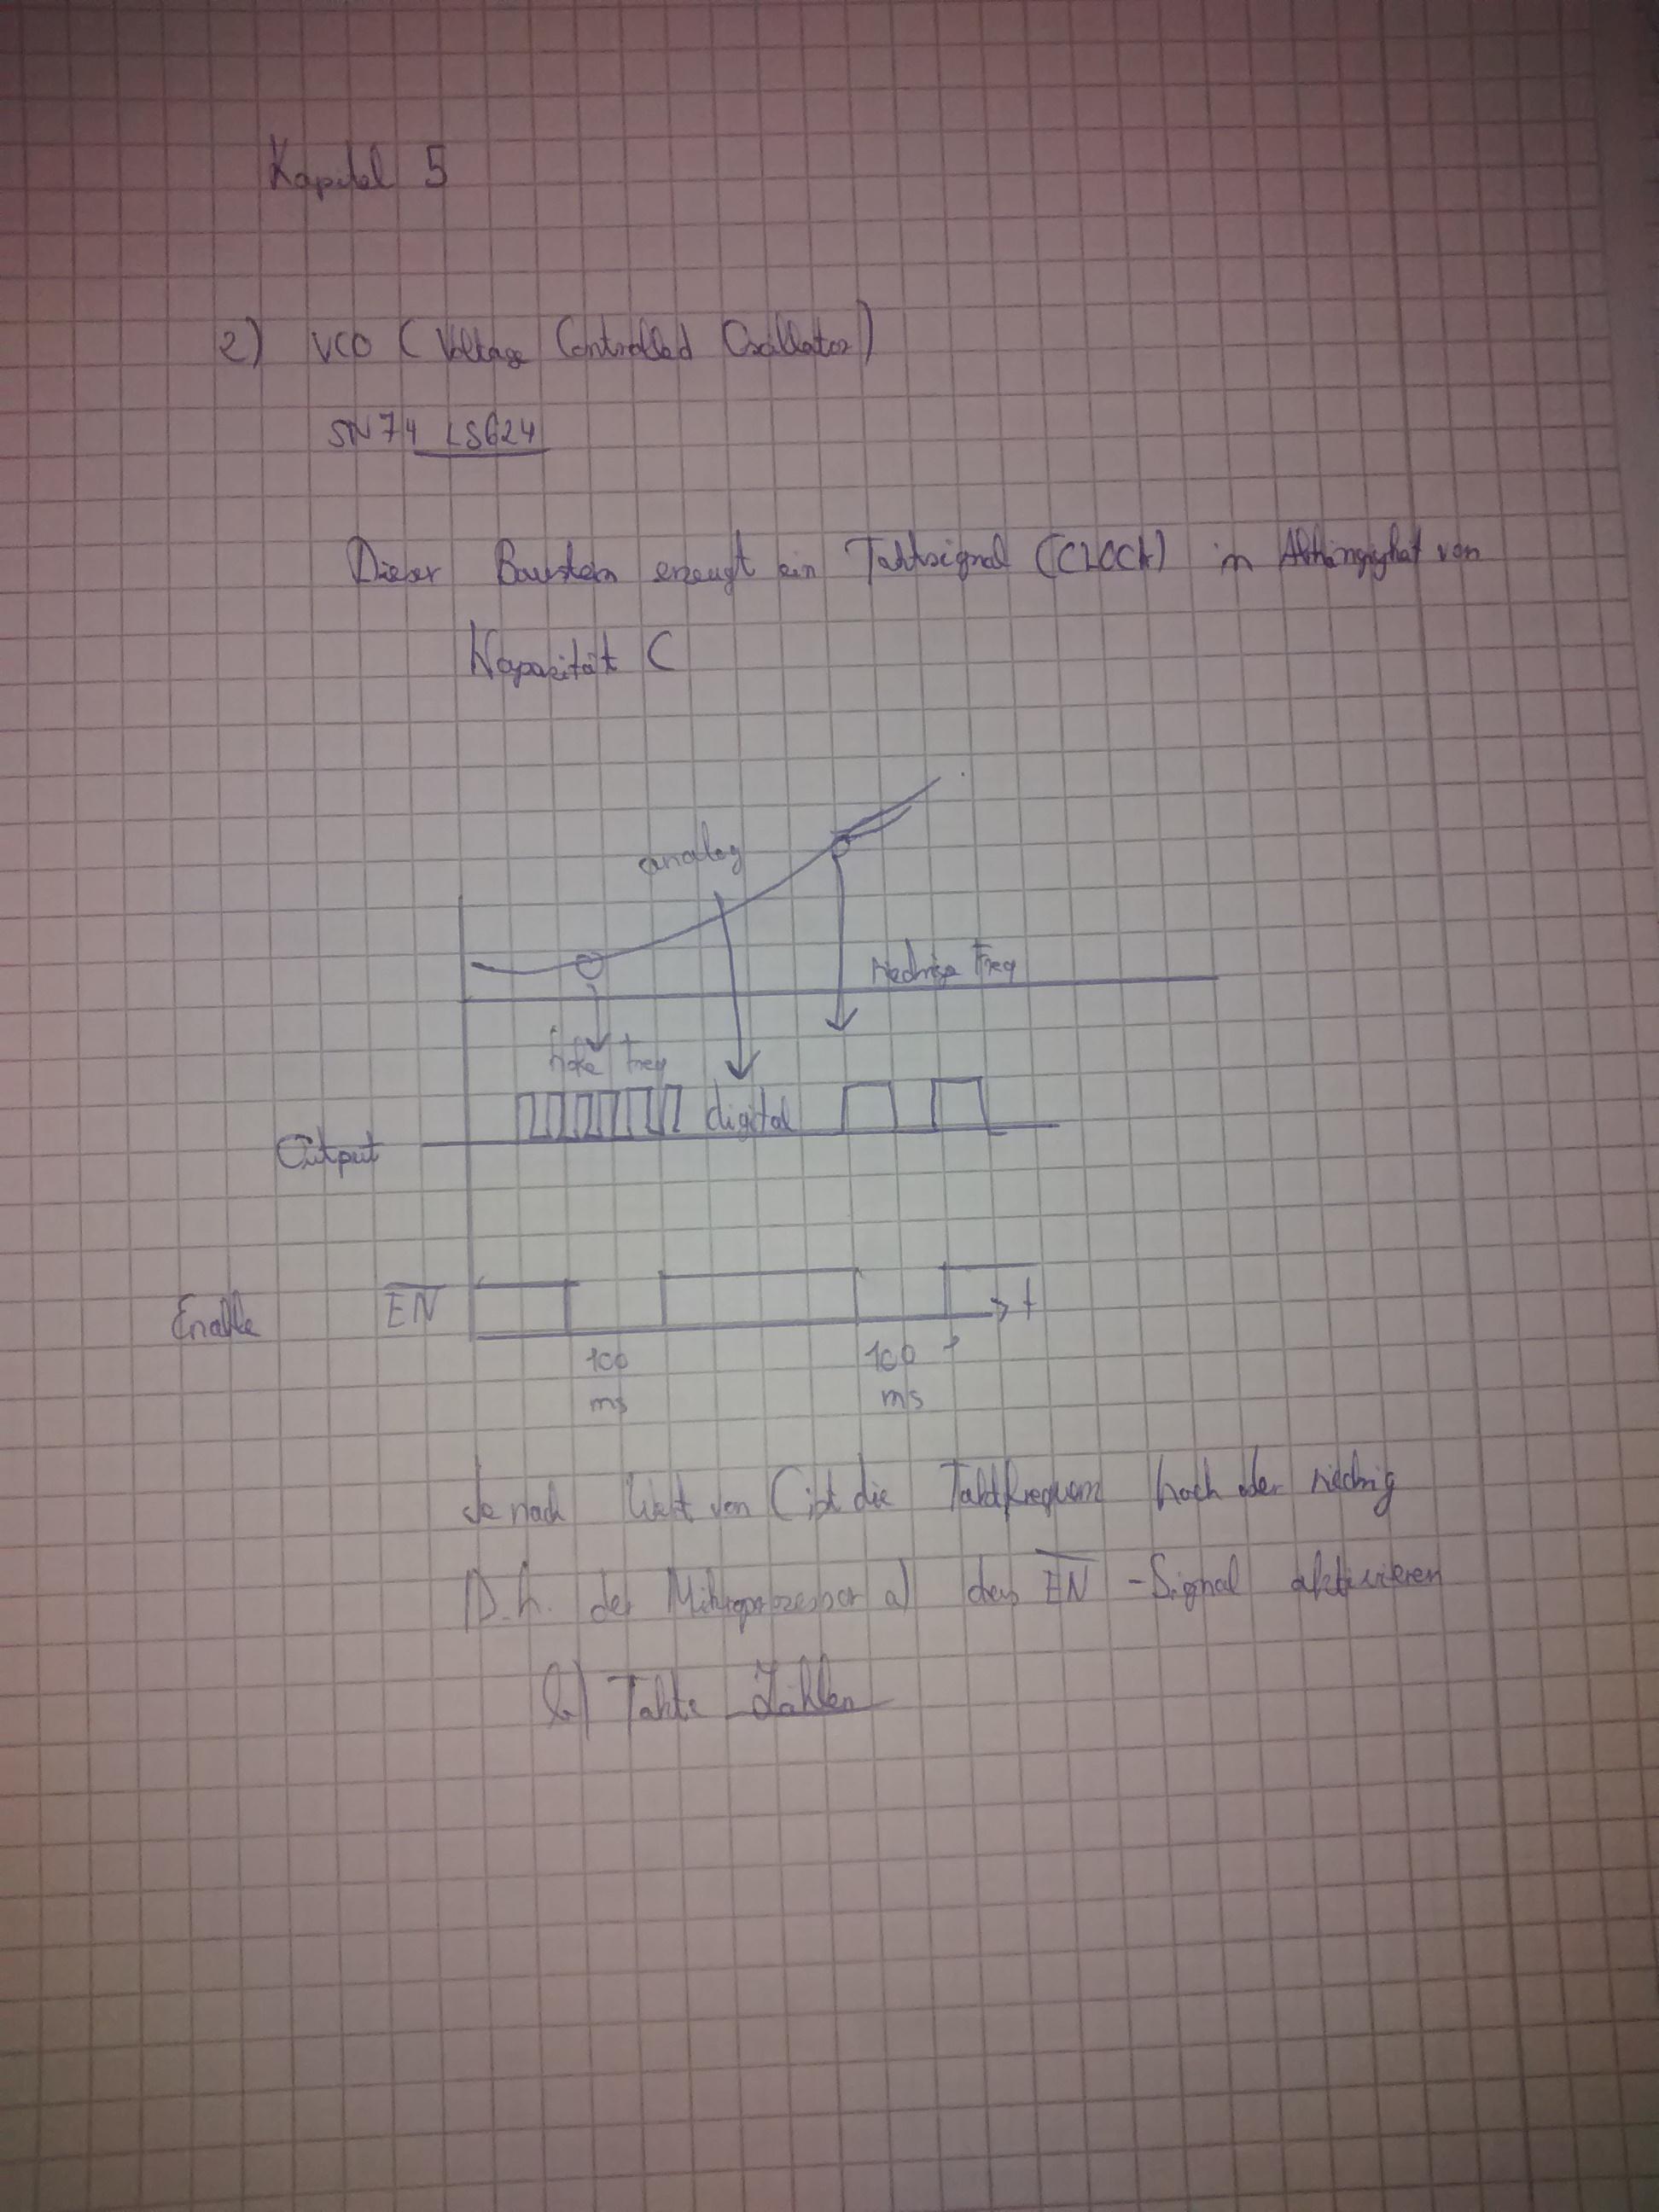 Kapitel 5
2) VCO (Voltage Controlled Oscillator)
SN74 LS624
Dieser Baustein erzeugt ein Taktsignal (CLOCK) in Abhängigkeit von
Kapazität C
analog
niedrige Freq
hohe Freq
digital
Output
Enable E̅N̅ t
100 100
ms ms
Je nach Wert von C ist die Taktfrequenz hoch oder niedrig
D.h. der Mikroprozessor a) das E̅N̅-Signal aktivieren
b) Takte Zählen